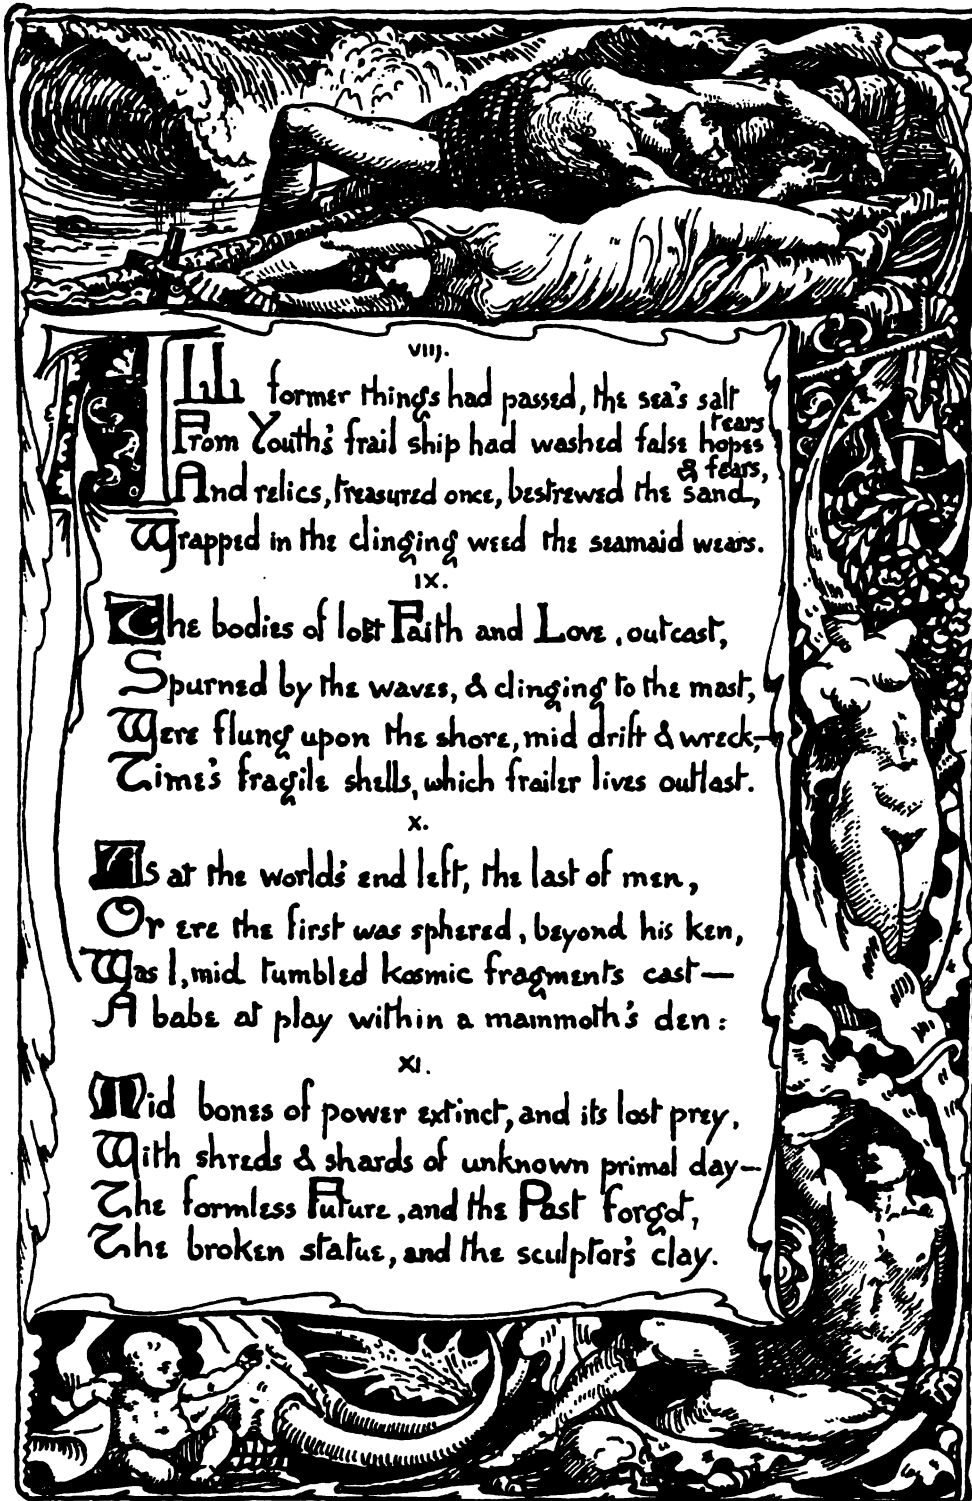 VIIJ.
ALL former things had passed, the sea's salt
tears
From Youth's frail ship had washed false hopes
& fears,
And relics, treasured once, bestrewed the sand,
Wrapped in the clinging weed the seamaid wears.
IX.
The bodies of lost Faith and Love, outcast,
Spurned by the waves, & clinging to the mast,
Were flung upon the shore, mid drift & wreck,—
Time's fragile shells, which frailer lives outlast.
X.
As at the world's end left, the last of men,
Or ere the first was sphered, beyond his ken,
Was I, mid tumbled kosmic fragments cast—
A babe at play within a mammoth's den:
XI.
Mid bones of power extinct, and its lost prey,
With shreds & shards of unknown primal day—
The formless Future, and the Past forgot,
The broken statue, and the sculptor's clay.